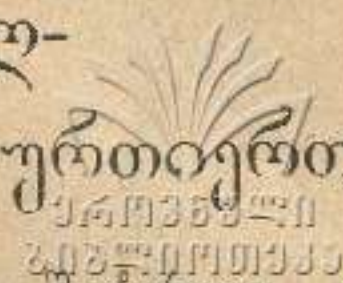 ო-
ურთიერთ
ეროვნული
ბიბლიოთეკა